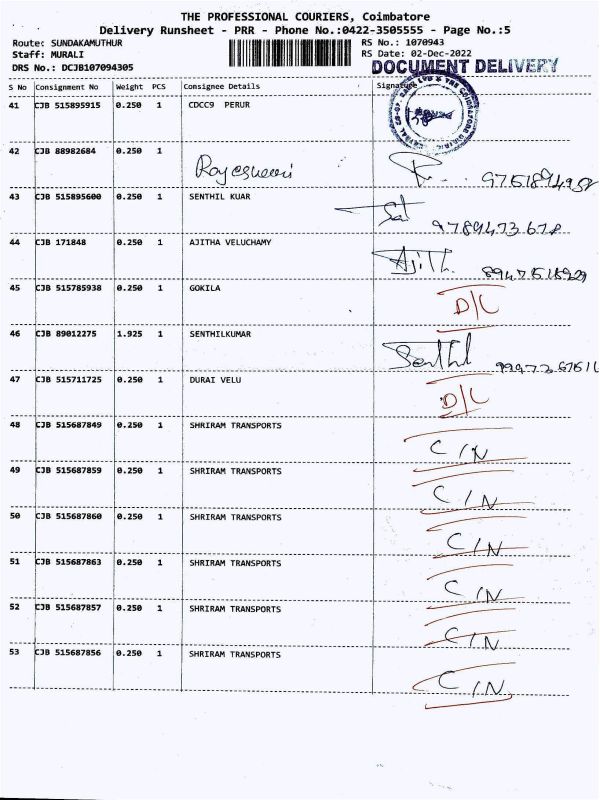 THE PROFESSIONAL COURIERS, Coimbatore
Delivery Runsheet - PRR - Phone No.:0422-3505555 - Page No.:5
Route: SUNDAKAMUTHUR RS No.: 1070943
Staff: MURALI RS Date: 02-Dec-2022
DRS No.: DCJB107094305 DOCUMENT DELIVERY
S No Consignment No Weight PCS Consignee Details Signature
41 CJB 515895915 0.250 1 CDCC9 PERUR
42 CJB 88982684 0.250 1 Rajeshwari
43 CJB 515895600 0.250 1 SENTHIL KUAR Sat 9789473678
44 CJB 171848 0.250 1 AJITHA VELUCHAMY Ajith
45 CJB 515785938 0.250 1 GOKILA D/L
46 CJB 89012275 1.925 1 SENTHILKUMAR Senthil
47 CJB 515711725 0.250 1 DURAI VELU D/L
48 CJB 515687849 0.250 1 SHRIRAM TRANSPORTS C/N
49 CJB 515687859 0.250 1 SHRIRAM TRANSPORTS C/N
50 CJB 515687860 0.250 1 SHRIRAM TRANSPORTS C/N
51 CJB 515687863 0.250 1 SHRIRAM TRANSPORTS C/N
52 CJB 515687857 0.250 1 SHRIRAM TRANSPORTS C/N
53 CJB 515687856 0.250 1 SHRIRAM TRANSPORTS C/N